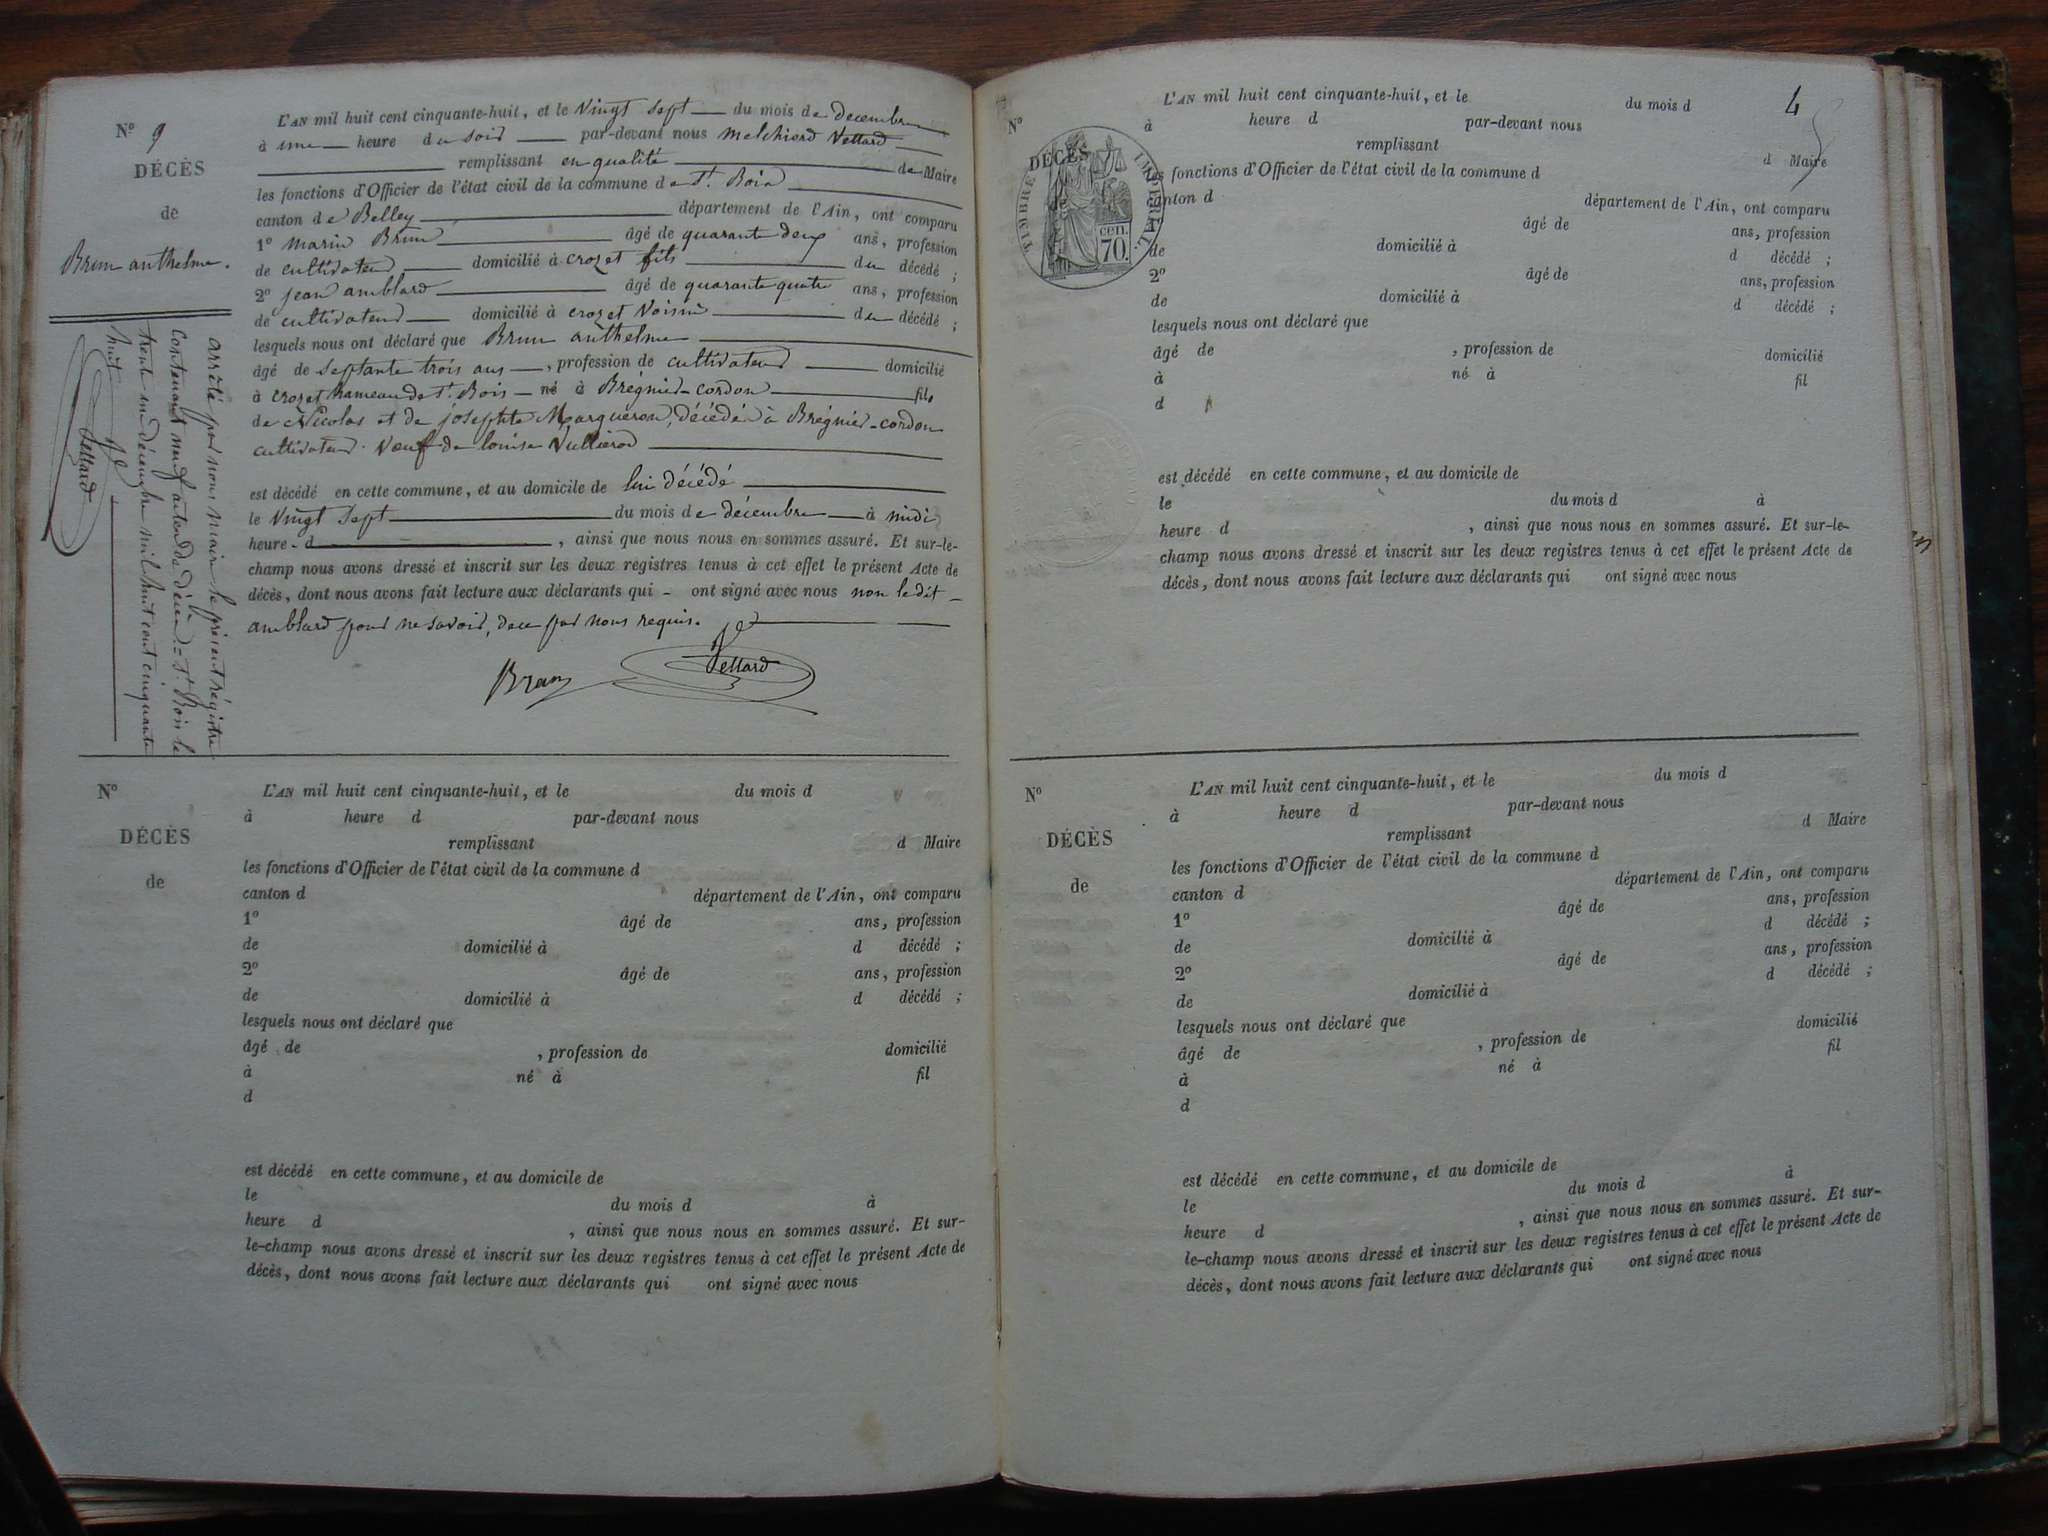 Nº 9
DÉCÈS
de
Brun anthelme.
L'AN mil huit cent cinquante-huit, et le Vingt Sept du mois de décembre
à une heure du soir par-devant nous Melchiord Vettard
remplissant en qualité de Maire
les fonctions d'Officier de l'état civil de la commune de St. Bois
canton de Belley département de l'Ain, ont comparu
1º Marin Brun âgé de quarante deux ans, profession
de cultivateur domicilié à crozet fils du décédé ;
2º jean amblard âgé de quarante quatre ans, profession
de cultivateur domicilié à crozet Voisin du décédé ;
lesquels nous ont déclaré que Brun anthelme
âgé de septante trois ans, profession de cultivateur domicilié
à crozet hameau de St. Bois né à Brégnier-cordon fils
de Nicolas et de josephte Marqueron, décédé à Brégnier-cordon
cultivateur. Veuf de louise Vullierod
est décédé en cette commune, et au domicile de lui décédé
le Vingt Sept du mois de décembre à midi
heure d , ainsi que nous nous en sommes assuré. Et sur-le-
champ nous avons dressé et inscrit sur les deux registres tenus à cet effet le présent Acte de
décès, dont nous avons fait lecture aux déclarants qui - ont signé avec nous non le dit
amblard pour ne savoir, de ce par nous requis.
Brun Vettard
arrêté par nous maire le présent régistre
contenant neuf actes de décès. St. Bois le
trent un décembre mil huit cent cinquante
huit
Vettard
Nº
DÉCÈS
de
L'AN mil huit cent cinquante-huit, et le du mois d
à heure d par-devant nous
remplissant d Maire
les fonctions d'Officier de l'état civil de la commune d
canton d département de l'Ain, ont comparu
1º âgé de ans, profession
de domicilié à d décédé ;
2º âgé de ans, profession
de domicilié à d décédé ;
lesquels nous ont déclaré que
âgé de , profession de domicilié
à né à fil
d
est décédé en cette commune, et au domicile de
le du mois d à
heure d , ainsi que nous nous en sommes assuré. Et sur-
le-champ nous avons dressé et inscrit sur les deux registres tenus à cet effet le présent Acte de
décès, dont nous avons fait lecture aux déclarants qui ont signé avec nous
4
Nº
DÉCÈS
de
TIMBRE IMPÉRIAL
70 cen.
L'AN mil huit cent cinquante-huit, et le du mois d
à heure d par-devant nous
remplissant d Maire
les fonctions d'Officier de l'état civil de la commune d
canton d département de l'Ain, ont comparu
âgé de ans, profession
de domicilié à d décédé ;
2º âgé de ans, profession
de domicilié à d décédé ;
lesquels nous ont déclaré que
âgé de , profession de domicilié
à né à fil
d
est décédé en cette commune, et au domicile de
le du mois d à
heure d , ainsi que nous nous en sommes assuré. Et sur-le-
champ nous avons dressé et inscrit sur les deux registres tenus à cet effet le présent Acte de
décès, dont nous avons fait lecture aux déclarants qui ont signé avec nous
Nº
DÉCÈS
de
L'AN mil huit cent cinquante-huit, et le du mois d
à heure d par-devant nous
remplissant d Maire
les fonctions d'Officier de l'état civil de la commune d
canton d département de l'Ain, ont comparu
1º âgé de ans, profession
de domicilié à d décédé ;
2º âgé de ans, profession
de domicilié à d décédé ;
lesquels nous ont déclaré que
âgé de , profession de domicilié
à né à fil
d
est décédé en cette commune, et au domicile de
le du mois d à
heure d , ainsi que nous nous en sommes assuré. Et sur-
le-champ nous avons dressé et inscrit sur les deux registres tenus à cet effet le présent Acte de
décès, dont nous avons fait lecture aux déclarants qui ont signé avec nous